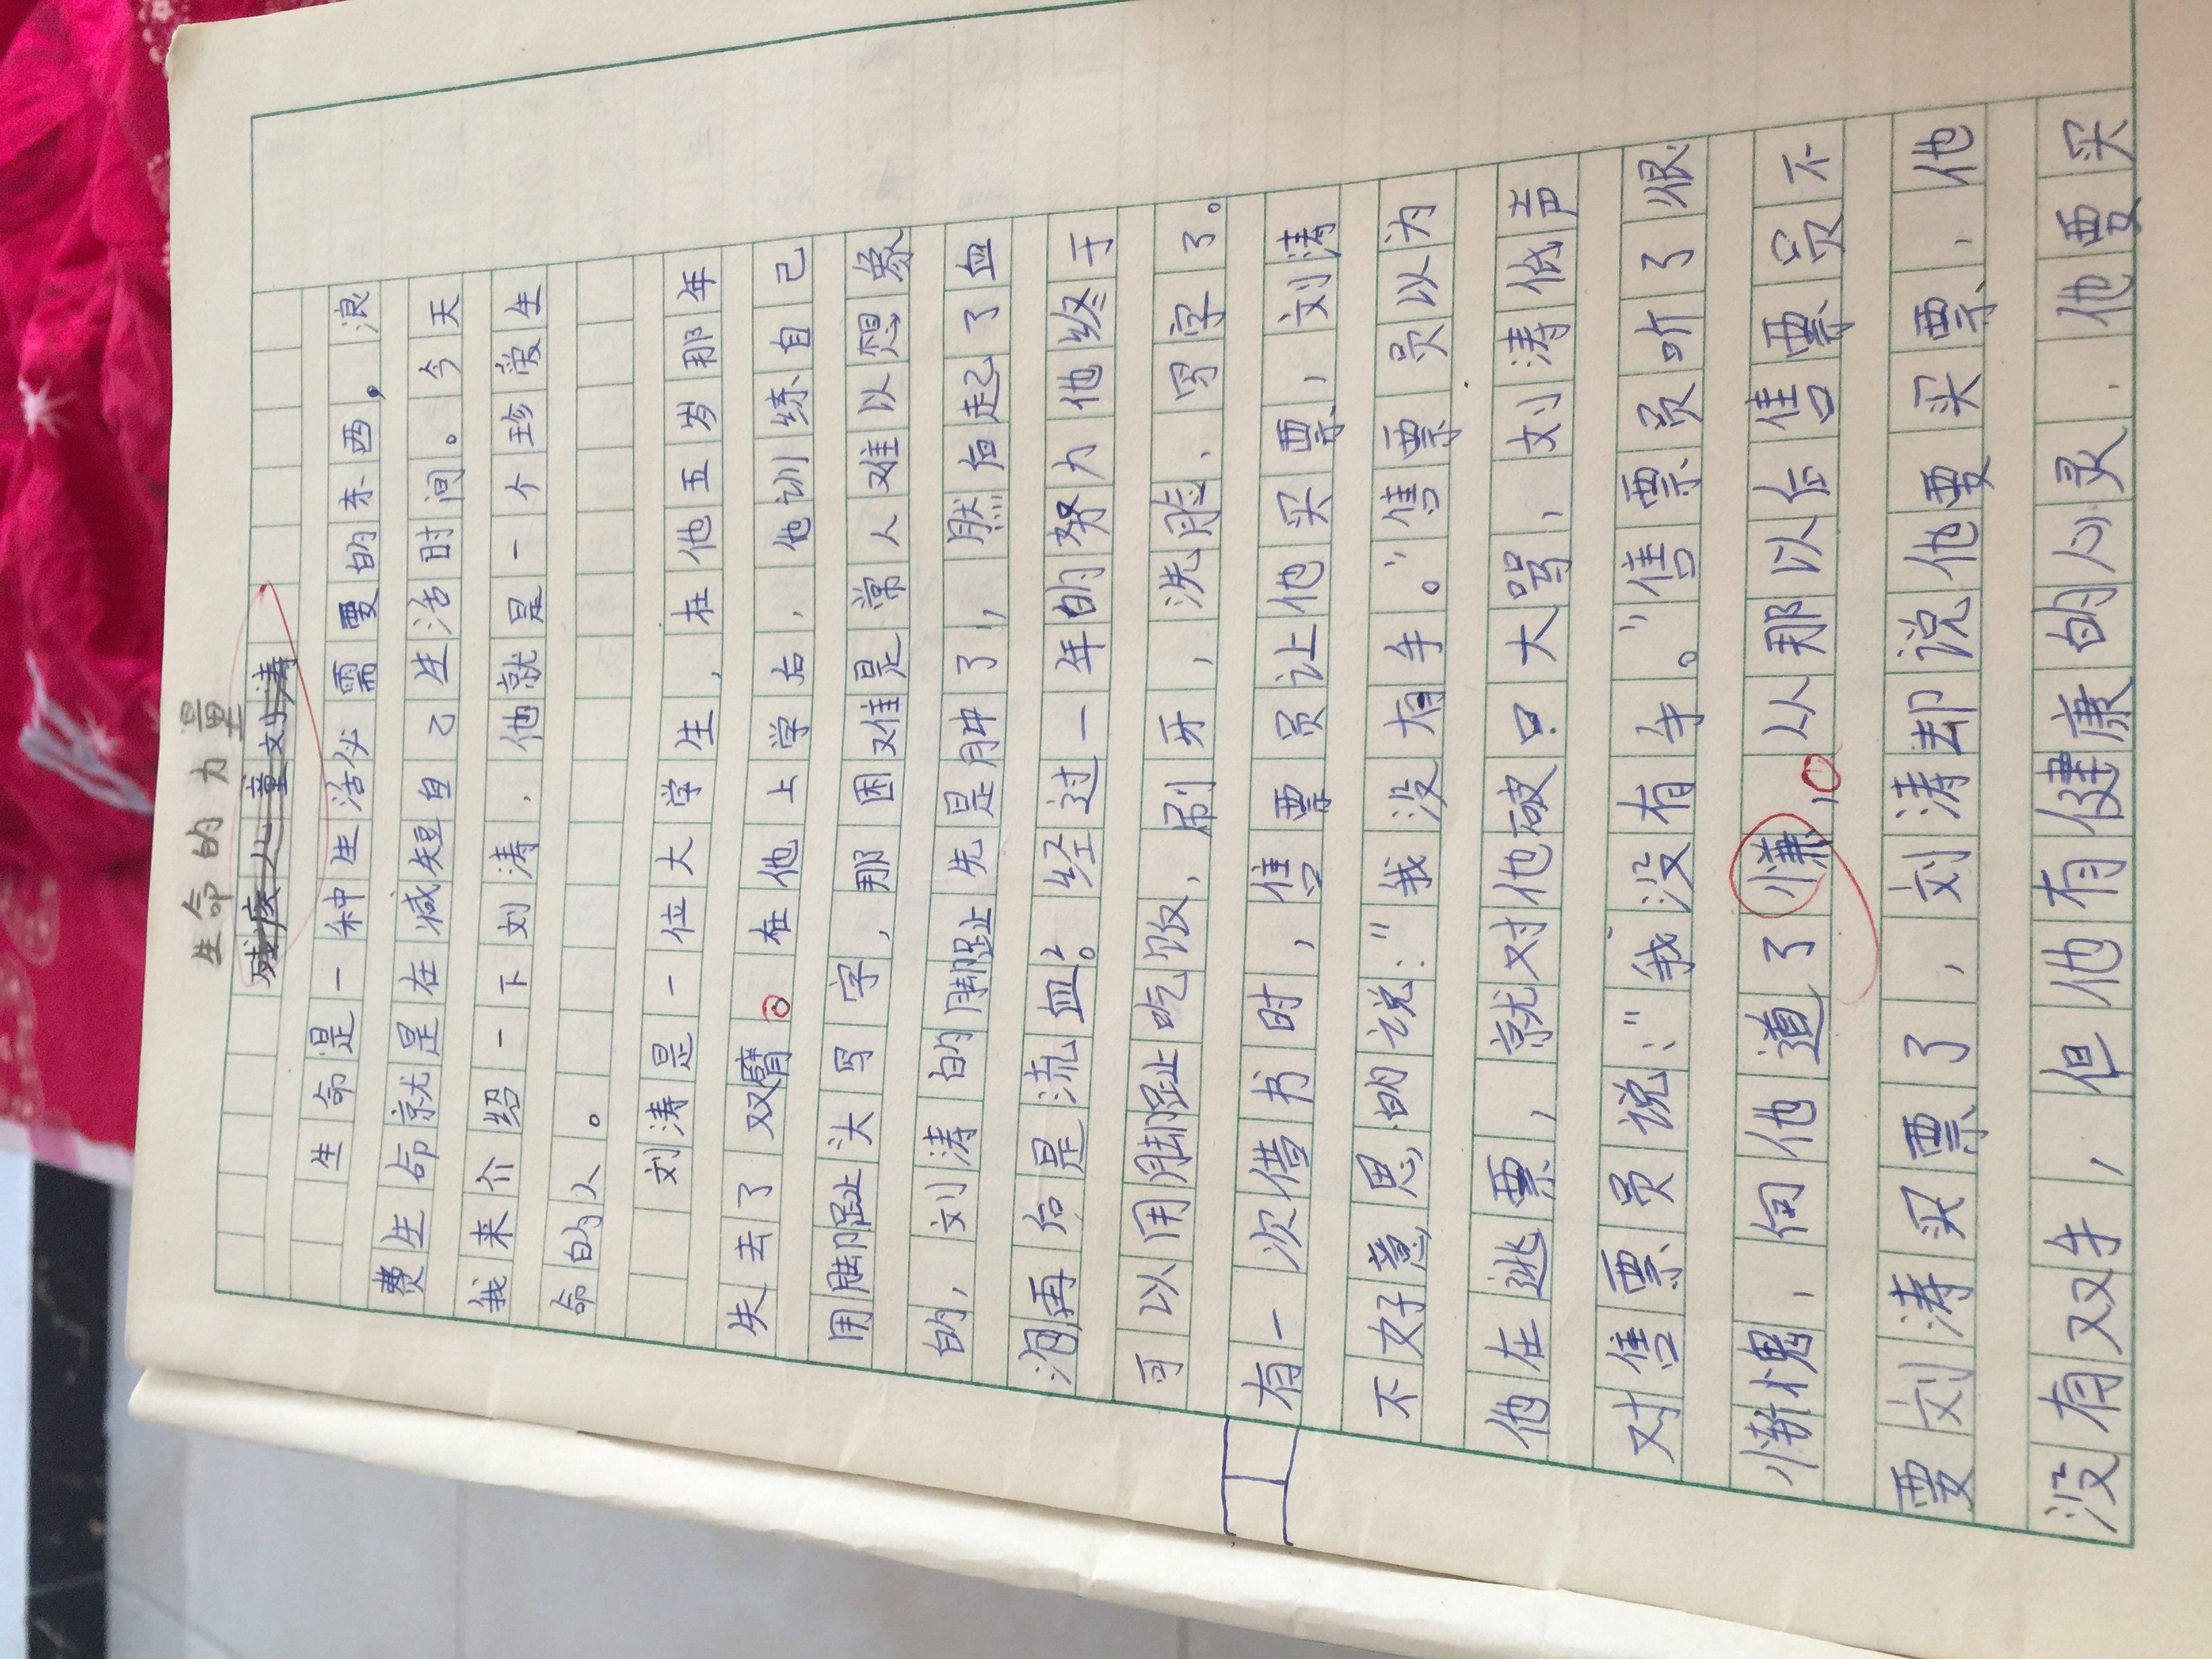 生命的力量
残疾人童刘涛
生命是一种生活必需要的东西，浪
费生命就是在减短自己生活时间。今天
我来介绍一下刘涛，他就是一个珍爱生
命的人。
刘涛是一位大学生，在他五岁那年
失去了双臂。在他上学后，他训练自己
用脚趾头写字，那困难是常人难以想象
的，刘涛的脚趾先是肿了，然后起了血
泡再后是流血。经过一年的努力他终于
可以用脚趾吃饭，刷牙，洗脸、写字了。
有一次借书时，售票员让他买票，刘涛
不好意思的说：“我没有手。”售票员以为
他在逃票，就对他破口大骂，刘涛低声
对售票员说：“我没有手。”售票员听了很
惭愧，向他道了慊。从那以后售票员不
要刘涛买票了，刘涛却说他要买票，他
没有双手，但他有健康的心灵，他要买